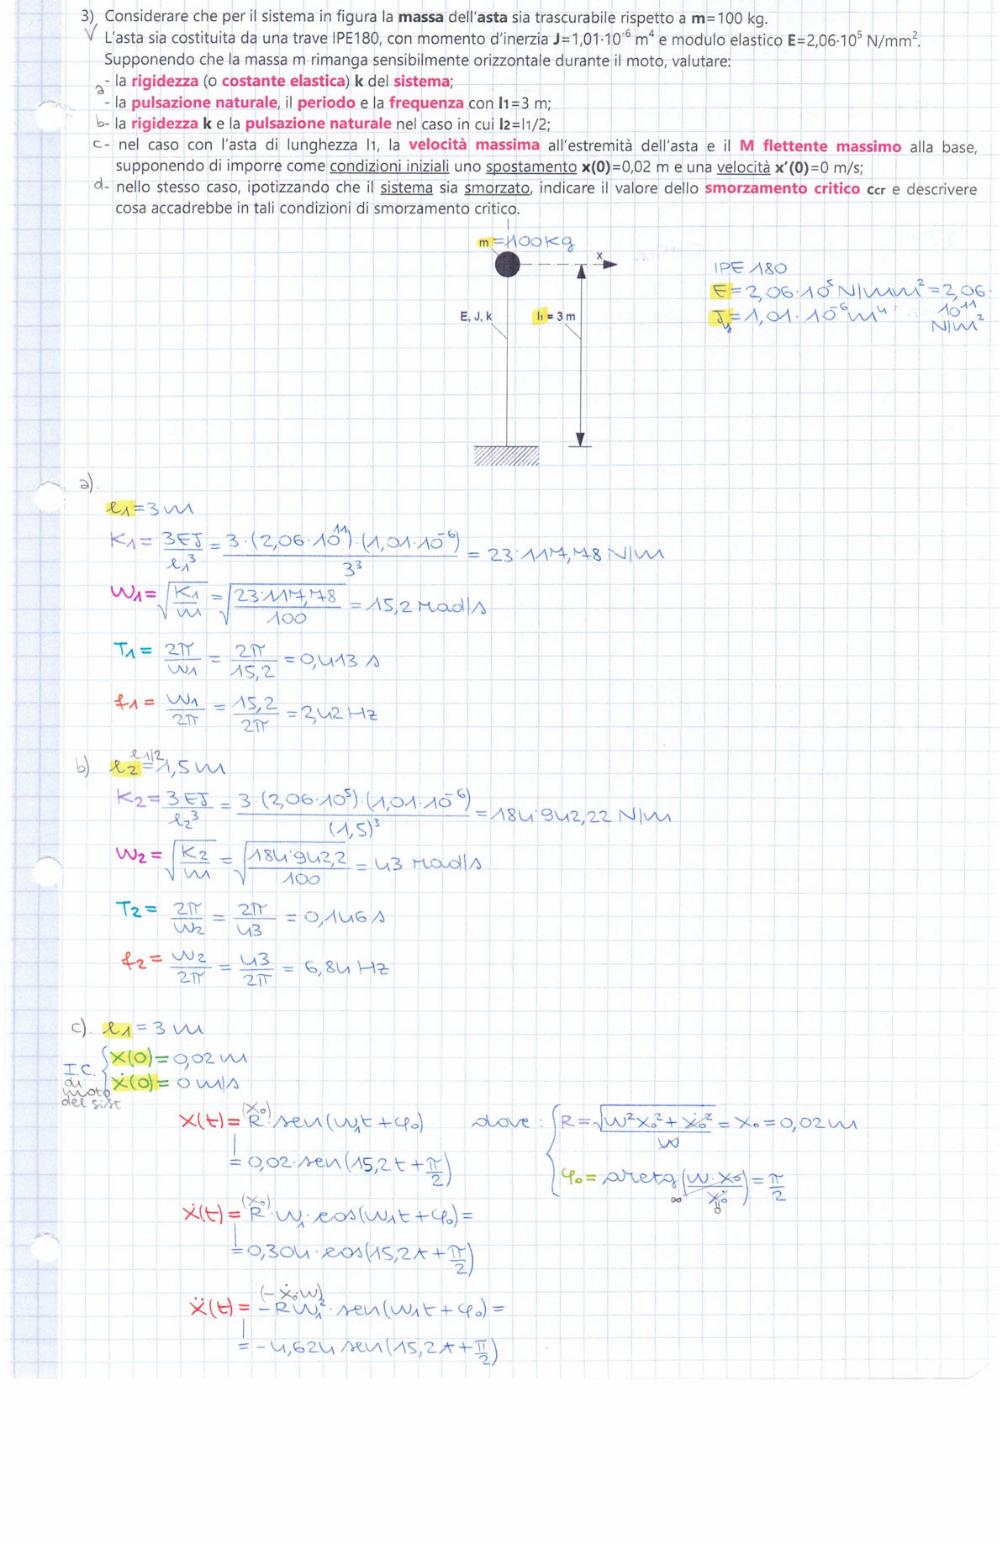 3) Considerare che per il sistema in figura la massa dell'asta sia trascurabile rispetto a m=100 kg.
√ L'asta sia costituita da una trave IPE180, con momento d'inerzia J=1,01·10⁻⁶ m⁴ e modulo elastico E=2,06·10⁵ N/mm².
Supponendo che la massa m rimanga sensibilmente orizzontale durante il moto, valutare:
a - la rigidezza (o costante elastica) k del sistema;
- la pulsazione naturale, il periodo e la frequenza con l1=3 m;
b- la rigidezza k e la pulsazione naturale nel caso in cui l2=l1/2;
c- nel caso con l'asta di lunghezza l1, la velocità massima all'estremità dell'asta e il M flettente massimo alla base,
supponendo di imporre come condizioni iniziali uno spostamento x(0)=0,02 m e una velocità x'(0)=0 m/s;
d- nello stesso caso, ipotizzando che il sistema sia smorzato, indicare il valore dello smorzamento critico ccr e descrivere
cosa accadrebbe in tali condizioni di smorzamento critico.
m=100kg
x
E, J, k
l₁ = 3 m
IPE 180
E=2,06·10⁵ N/mm²=2,06·10¹¹ N/m²
Jy=1,01·10⁻⁶m⁴
a).
l1=3m
K1= 3EJ/l1³ = 3·(2,06·10¹¹)·(1,01·10⁻⁶)/3³ = 23·117,78 N/m
W1= √(K1/m) = √(23·117,78/100) = 15,2 rad/s
T1= 2π/W1 = 2π/15,2 = 0,413 s
f1= W1/2π = 15,2/2π = 2,42 Hz
b) l2=l1/2=1,5m
K2= 3EJ/l2³ = 3·(2,06·10⁵)·(1,01·10⁻⁶)/(1,5)³ = 184·942,22 N/m
W2= √(K2/m) = √(184·942,2/100) = 43 rad/s
T2= 2π/W2 = 2π/43 = 0,146 s
f2= W2/2π = 43/2π = 6,84 Hz
c). l1=3m
I.C. di moto del sist { x(0)=0,02m
ẋ(0)= 0 m/s
x(t)= R(x₀)·sen(W1t+φ₀) dove: { R= √(W²x₀²+ẋ₀²)/W = x₀=0,02m
= 0,02·sen(15,2t+π/2)
φ₀= arctg(W·x₀/ẋ₀)= π/2
∞ 0
ẋ(t)= R(x₀)·W1·cos(W1t+φ₀)=
= 0,304·cos(15,2t+π/2)
ẍ(t)= (-ẋ₀W) -RW1²·sen(W1t+φ₀)=
= -4,624 sen(15,2t+π/2)